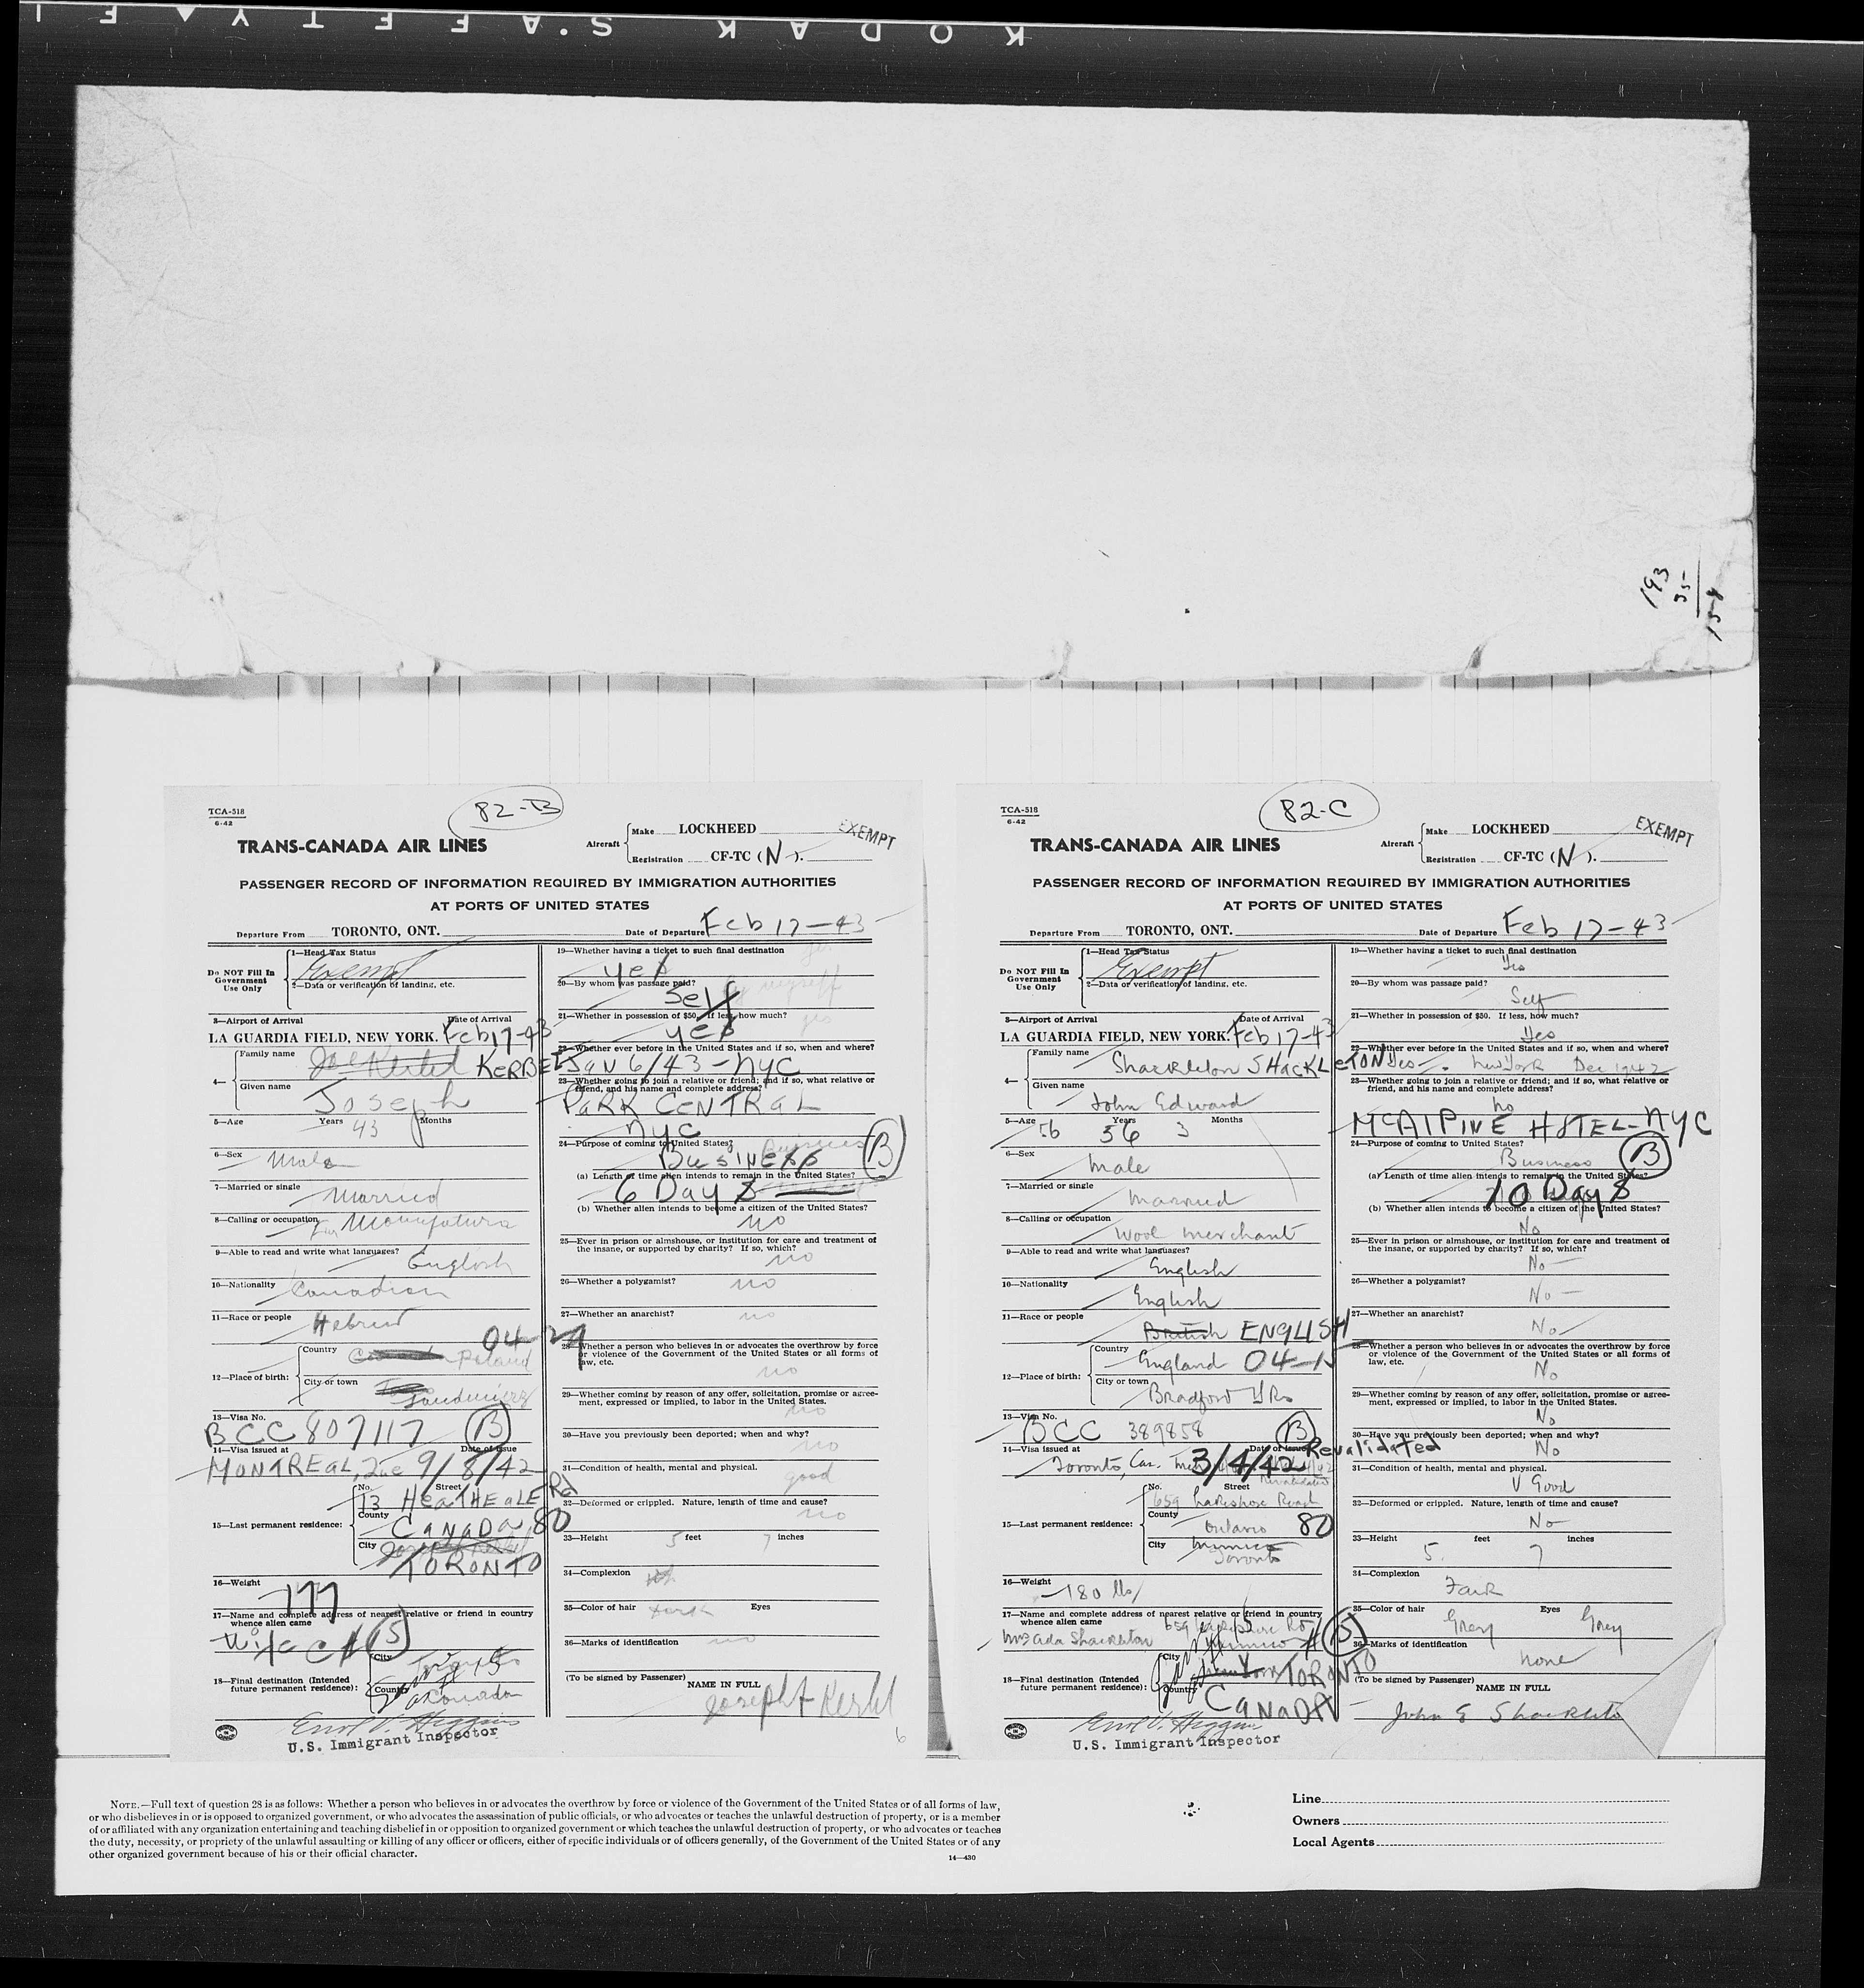 KODAK S.AFETY FI
193
35
158
TCA-518
6-42
82-B
TRANS-CANADA AIR LINES
Aircraft
Make LOCKHEED
Registration CF-TC (N).
EXEMPT
PASSENGER RECORD OF INFORMATION REQUIRED BY IMMIGRATION AUTHORITIES
AT PORTS OF UNITED STATES
Departure From TORONTO, ONT. Date of Departure Feb 17-43
Do NOT Fill In Government Use Only
1—Head Tax Status
Exempt
2—Data or verification of landing, etc.
3—Airport of Arrival Date of Arrival
LA GUARDIA FIELD, NEW YORK. Feb 17-43
4—
Family name
KERBEL
Given name
Joseph
5—Age Years 43 Months
6—Sex Male
7—Married or single Married
8—Calling or occupation
9—Able to read and write what languages? English
10—Nationality Canadian
11—Race or people Hebrew
04-29
12—Place of birth:
Country Poland
City or town
13—Visa No.
BCC 807117 (B)
14—Visa issued at Date of issue
MONTREAL, Que 9/8/42
15—Last permanent residence:
No. Street
13 HEATHEALE Rd
County CANADA 80
City TORONTO
16—Weight 177
17—Name and complete address of nearest relative or friend in country whence alien came
Wife
18—Final destination (Intended future permanent residence):
City Toronto
Country
U.S. Immigrant Inspector
19—Whether having a ticket to such final destination
yes
20—By whom was passage paid? by myself
Self
21—Whether in possession of $50. If less, how much? yes
yes
22—Whether ever before in the United States and if so, when and where?
JAN 6/43-NYC
23—Whether going to join a relative or friend; and if so, what relative or friend, and his name and complete address?
PARK CENTRAL
NYC
24—Purpose of coming to United States? Business
Business (B)
(a) Length of time alien intends to remain in the United States?
6 Days
(b) Whether alien intends to become a citizen of the United States?
no
25—Ever in prison or almshouse, or institution for care and treatment of the insane, or supported by charity? If so, which?
no
26—Whether a polygamist? no
27—Whether an anarchist? no
28—Whether a person who believes in or advocates the overthrow by force or violence of the Government of the United States or all forms of law, etc.
no
29—Whether coming by reason of any offer, solicitation, promise or agreement, expressed or implied, to labor in the United States.
no
30—Have you previously been deported; when and why?
no
31—Condition of health, mental and physical.
good
32—Deformed or crippled. Nature, length of time and cause?
no
33—Height 5 feet 7 inches
34—Complexion
35—Color of hair dark Eyes
36—Marks of identification no
(To be signed by Passenger) NAME IN FULL
Joseph Kerbel
6
TCA-518
6-42
82-C
TRANS-CANADA AIR LINES
Aircraft
Make LOCKHEED
Registration CF-TC (N).
EXEMPT
PASSENGER RECORD OF INFORMATION REQUIRED BY IMMIGRATION AUTHORITIES
AT PORTS OF UNITED STATES
Departure From TORONTO, ONT. Date of Departure Feb 17-43
Do NOT Fill In Government Use Only
1—Head Tax Status
Exempt
2—Data or verification of landing, etc.
3—Airport of Arrival Date of Arrival
LA GUARDIA FIELD, NEW YORK. Feb 17-43
4—
Family name
Shackleton SHACKLETON
Given name
John Edward
5—Age 56 Years 56 3 Months
6—Sex
Male
7—Married or single
Married
8—Calling or occupation
Wool Merchant
9—Able to read and write what languages?
English
10—Nationality
English
11—Race or people
British ENGLISH
12—Place of birth:
Country England 04-15
City or town
Bradford Yks
13—Visa No.
BCC 389858 (B)
14—Visa issued at Date of issue Revalidated
Toronto, Can. 3/4/42
Revalidated
15—Last permanent residence:
No. Street
659 Lakeshore Road
County Ontario 80
City Mimico
Toronto
16—Weight
180 lbs
17—Name and complete address of nearest relative or friend in country whence alien came
659 Lakeshore Rd
Mrs Ada Shackleton Mimico
18—Final destination (Intended future permanent residence):
City New York TORONTO
Country CANADA
U.S. Immigrant Inspector
19—Whether having a ticket to such final destination
Yes
20—By whom was passage paid?
Self
21—Whether in possession of $50. If less, how much?
Yes
22—Whether ever before in the United States and if so, when and where?
Yes New York Dec 1942
23—Whether going to join a relative or friend; and if so, what relative or friend, and his name and complete address?
No
McALPINE HOTEL-NYC
24—Purpose of coming to United States?
Business (B)
(a) Length of time alien intends to remain in the United States?
10 Days
(b) Whether alien intends to become a citizen of the United States?
No
25—Ever in prison or almshouse, or institution for care and treatment of the insane, or supported by charity? If so, which?
No
26—Whether a polygamist?
No
27—Whether an anarchist?
No
28—Whether a person who believes in or advocates the overthrow by force or violence of the Government of the United States or all forms of law, etc.
No
29—Whether coming by reason of any offer, solicitation, promise or agreement, expressed or implied, to labor in the United States.
No
30—Have you previously been deported; when and why?
No
31—Condition of health, mental and physical.
V Good
32—Deformed or crippled. Nature, length of time and cause?
No
33—Height feet inches
5 7
34—Complexion
Fair
35—Color of hair Eyes
Grey Grey
36—Marks of identification
None
(To be signed by Passenger) NAME IN FULL
John E Shackleton
NOTE.—Full text of question 28 is as follows: Whether a person who believes in or advocates the overthrow by force or violence of the Government of the United States or of all forms of law,
or who disbelieves in or is opposed to organized government, or who advocates the assassination of public officials, or who advocates or teaches the unlawful destruction of property, or is a member
of or affiliated with any organization entertaining and teaching disbelief in or opposition to organized government or which teaches the unlawful destruction of property, or who advocates or teaches
the duty, necessity, or propriety of the unlawful assaulting or killing of any officer or officers, either of specific individuals or of officers generally, of the Government of the United States or of any
other organized government because of his or their official character.
14—430
Line
Owners
Local Agents